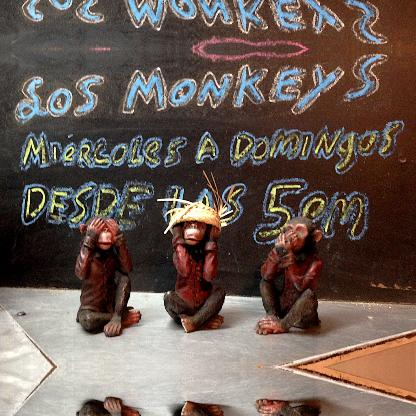 LOS MONKEYS
LOS MONKEYS
MiéRCOLES A DOMINgOS
DESDE LAS 5pm